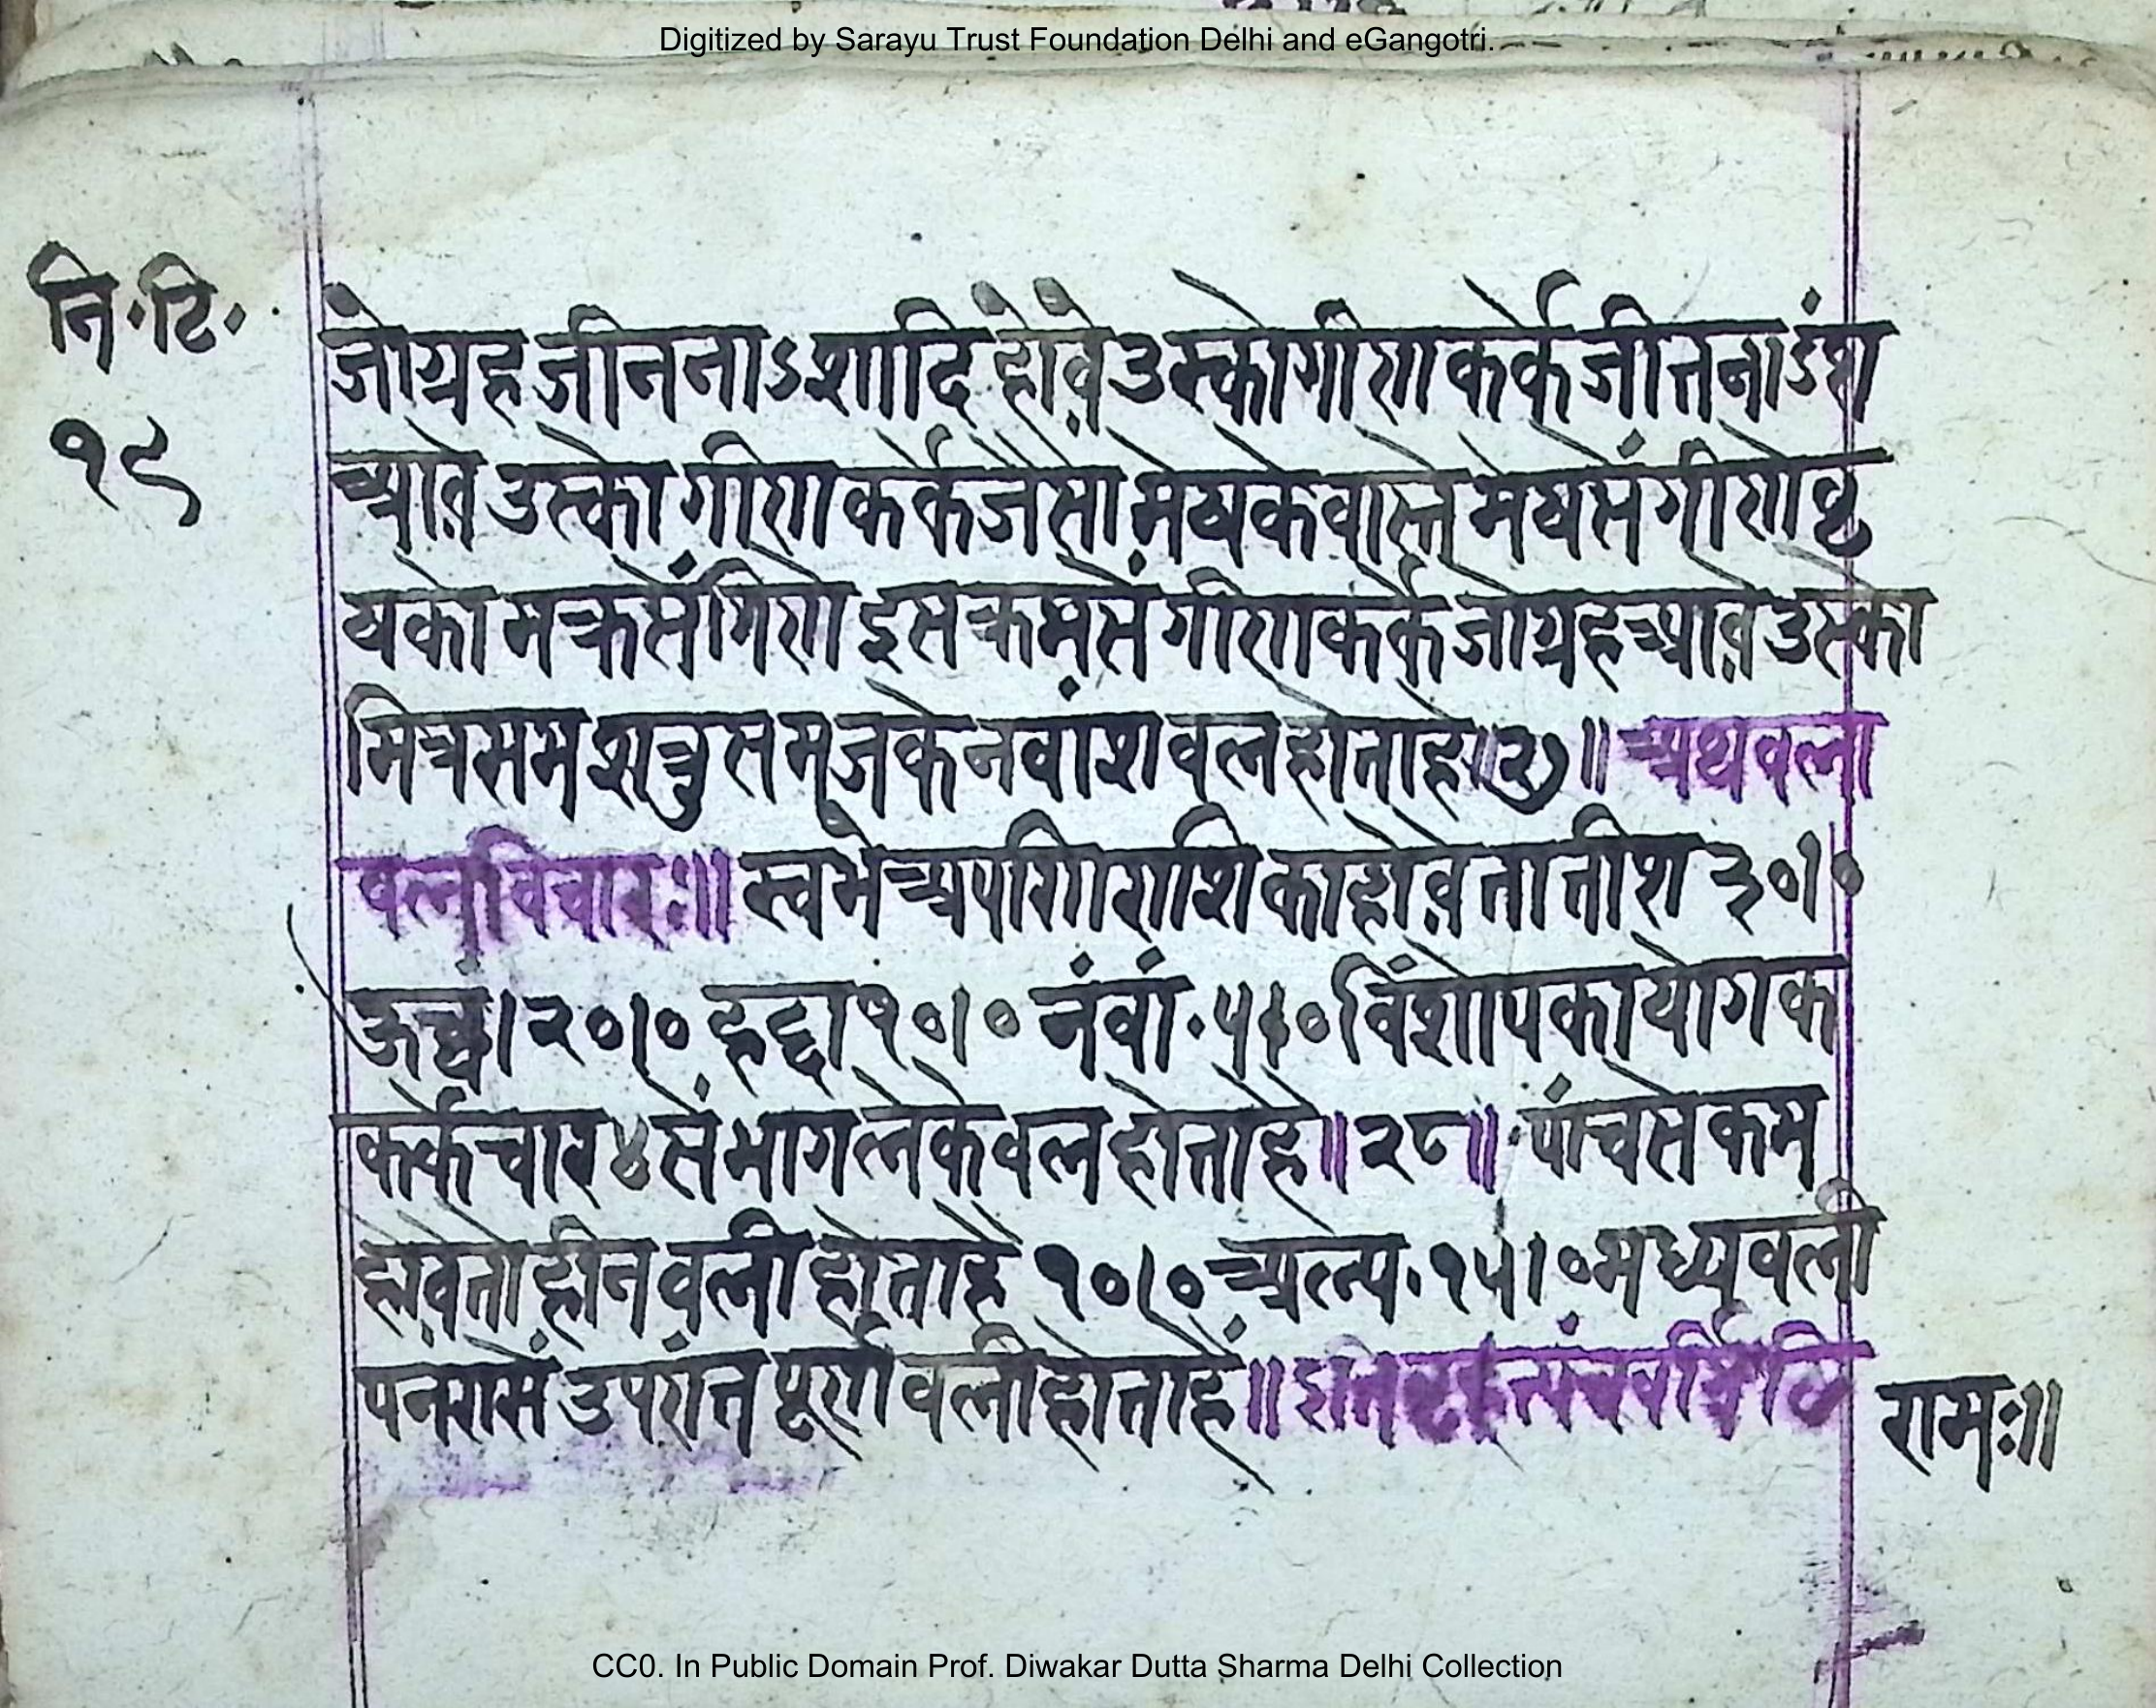 Digitized by Sarayu Trust Foundation Delhi and eGangotri.
नि॰टि॰
१९
जोग्रहजीतनाऽशादिहोवेउस्कोगीणकर्केजीतनाऽंश
आवेउस्कोगीणकर्केजैसामेषकेवास्तेमेषसेंगीणेवृ
षकोमक्रसेंगिणेइसक्रमसेंगीणकर्केजोग्रहआवेउस्को
मित्रसमशत्रुसमजकेनवांशवलहोताहै॥२७॥अथवला
वलविचारः॥स्वभेआपणिराशिकाहोवेतोतीश३०।०
ऊच्चं।२०।०हद्दा१०।०नंवां॰५।०विंशोपकायोगक
कर्केचार४सेंभागलेकेवलहोताहै॥२८॥पांचसेकम
होवेतोहीनवलीहोताहै१०।०अल्प॰१५।०मध्यवली
पनरासेंउपरांतपूर्णवलीहोताहै॥
रामः॥
CC0. In Public Domain Prof. Diwakar Dutta Sharma Delhi Collection